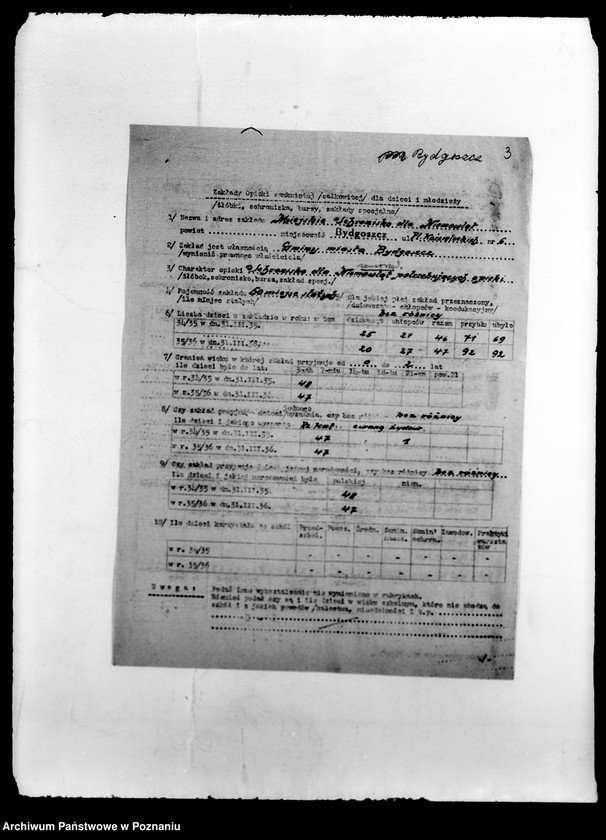 Bydgoszcz 3
Zakłady Opieki zamkniętej /całkowitej/ dla dzieci i młodzieży
/żłóbki, schroniska, bursy, zakłady specjalne/
1/ Nazwa i adres zakładu Miejskie Schronisko dla Niemowląt
powiat miejscowość Bydgoszcz ul. nr 6
2/ Zakład jest własnością Gminy miasta Bydgoszcz
/wymienić prawnego właściciela/
3/ Charakter opieki Schronisko dla Niemowląt potrzebujących opieki
/żłóbek, schronisko, bursa, zakład specj./
4/ Pojemność zakładu 50 miejsc stałych dla jakiej płci zakład przeznaczony,
/ile miejsc stałych/ /dziewcząt - chłopców - koedukacyjny/
bez różnicy
6/ Liczba dzieci w zakładzie w roku: w tem dziewcząt chłopców razem przybyło ubyło
34/35 w dn.31.III.35. 25 21 46 71 69
35/36 w dn.31.III.36. 20 27 47 92 92
7/ Granica wieku w której zakład przyjmuje od 0 do 2 lat
ile dzieci było do lat: 3-ch 7-miu 14-tu 18-tu 21-en pow.21
w r.34/35 w dn.31.III.35. 48
w r.35/36 w dn.31.III.36. 47
8/ Czy zakład przyjmuje dzieci jednego wyznania, czy bez różnicy bez różnicy
ile dzieci i jakiego wyznania
w r.34/35 w dn.31.III.35. 47 1
w r. 35/36 w dn.31.III.36. 47
9/ Czy zakład przyjmuje dzieci jednej narodowości, czy bez różnicy bez różnicy
ile dzieci i jakiej narodowości było polskiej niem.
w r.34/35 w dn.31.III.35. 48
w r.35/36 w dn.31.III.36. 47
10/ Ile dzieci korzystało ze szkół Przed-szkol. Powsz. Średn. Zawodow. Praktyki warszta tów
w r. 34/35 - - - - - - -
w r. 35/36 - - - - - - -
Uwaga: Podać inne wykształcenie nie wymienione w rubrykach.
Również podać czy są i ile dzieci w wieku szkolnym, które nie chodzą do
szkół i z jakich powodów /kalectwa, niezdolności i t.p.
Archiwum Państwowe w Poznaniu